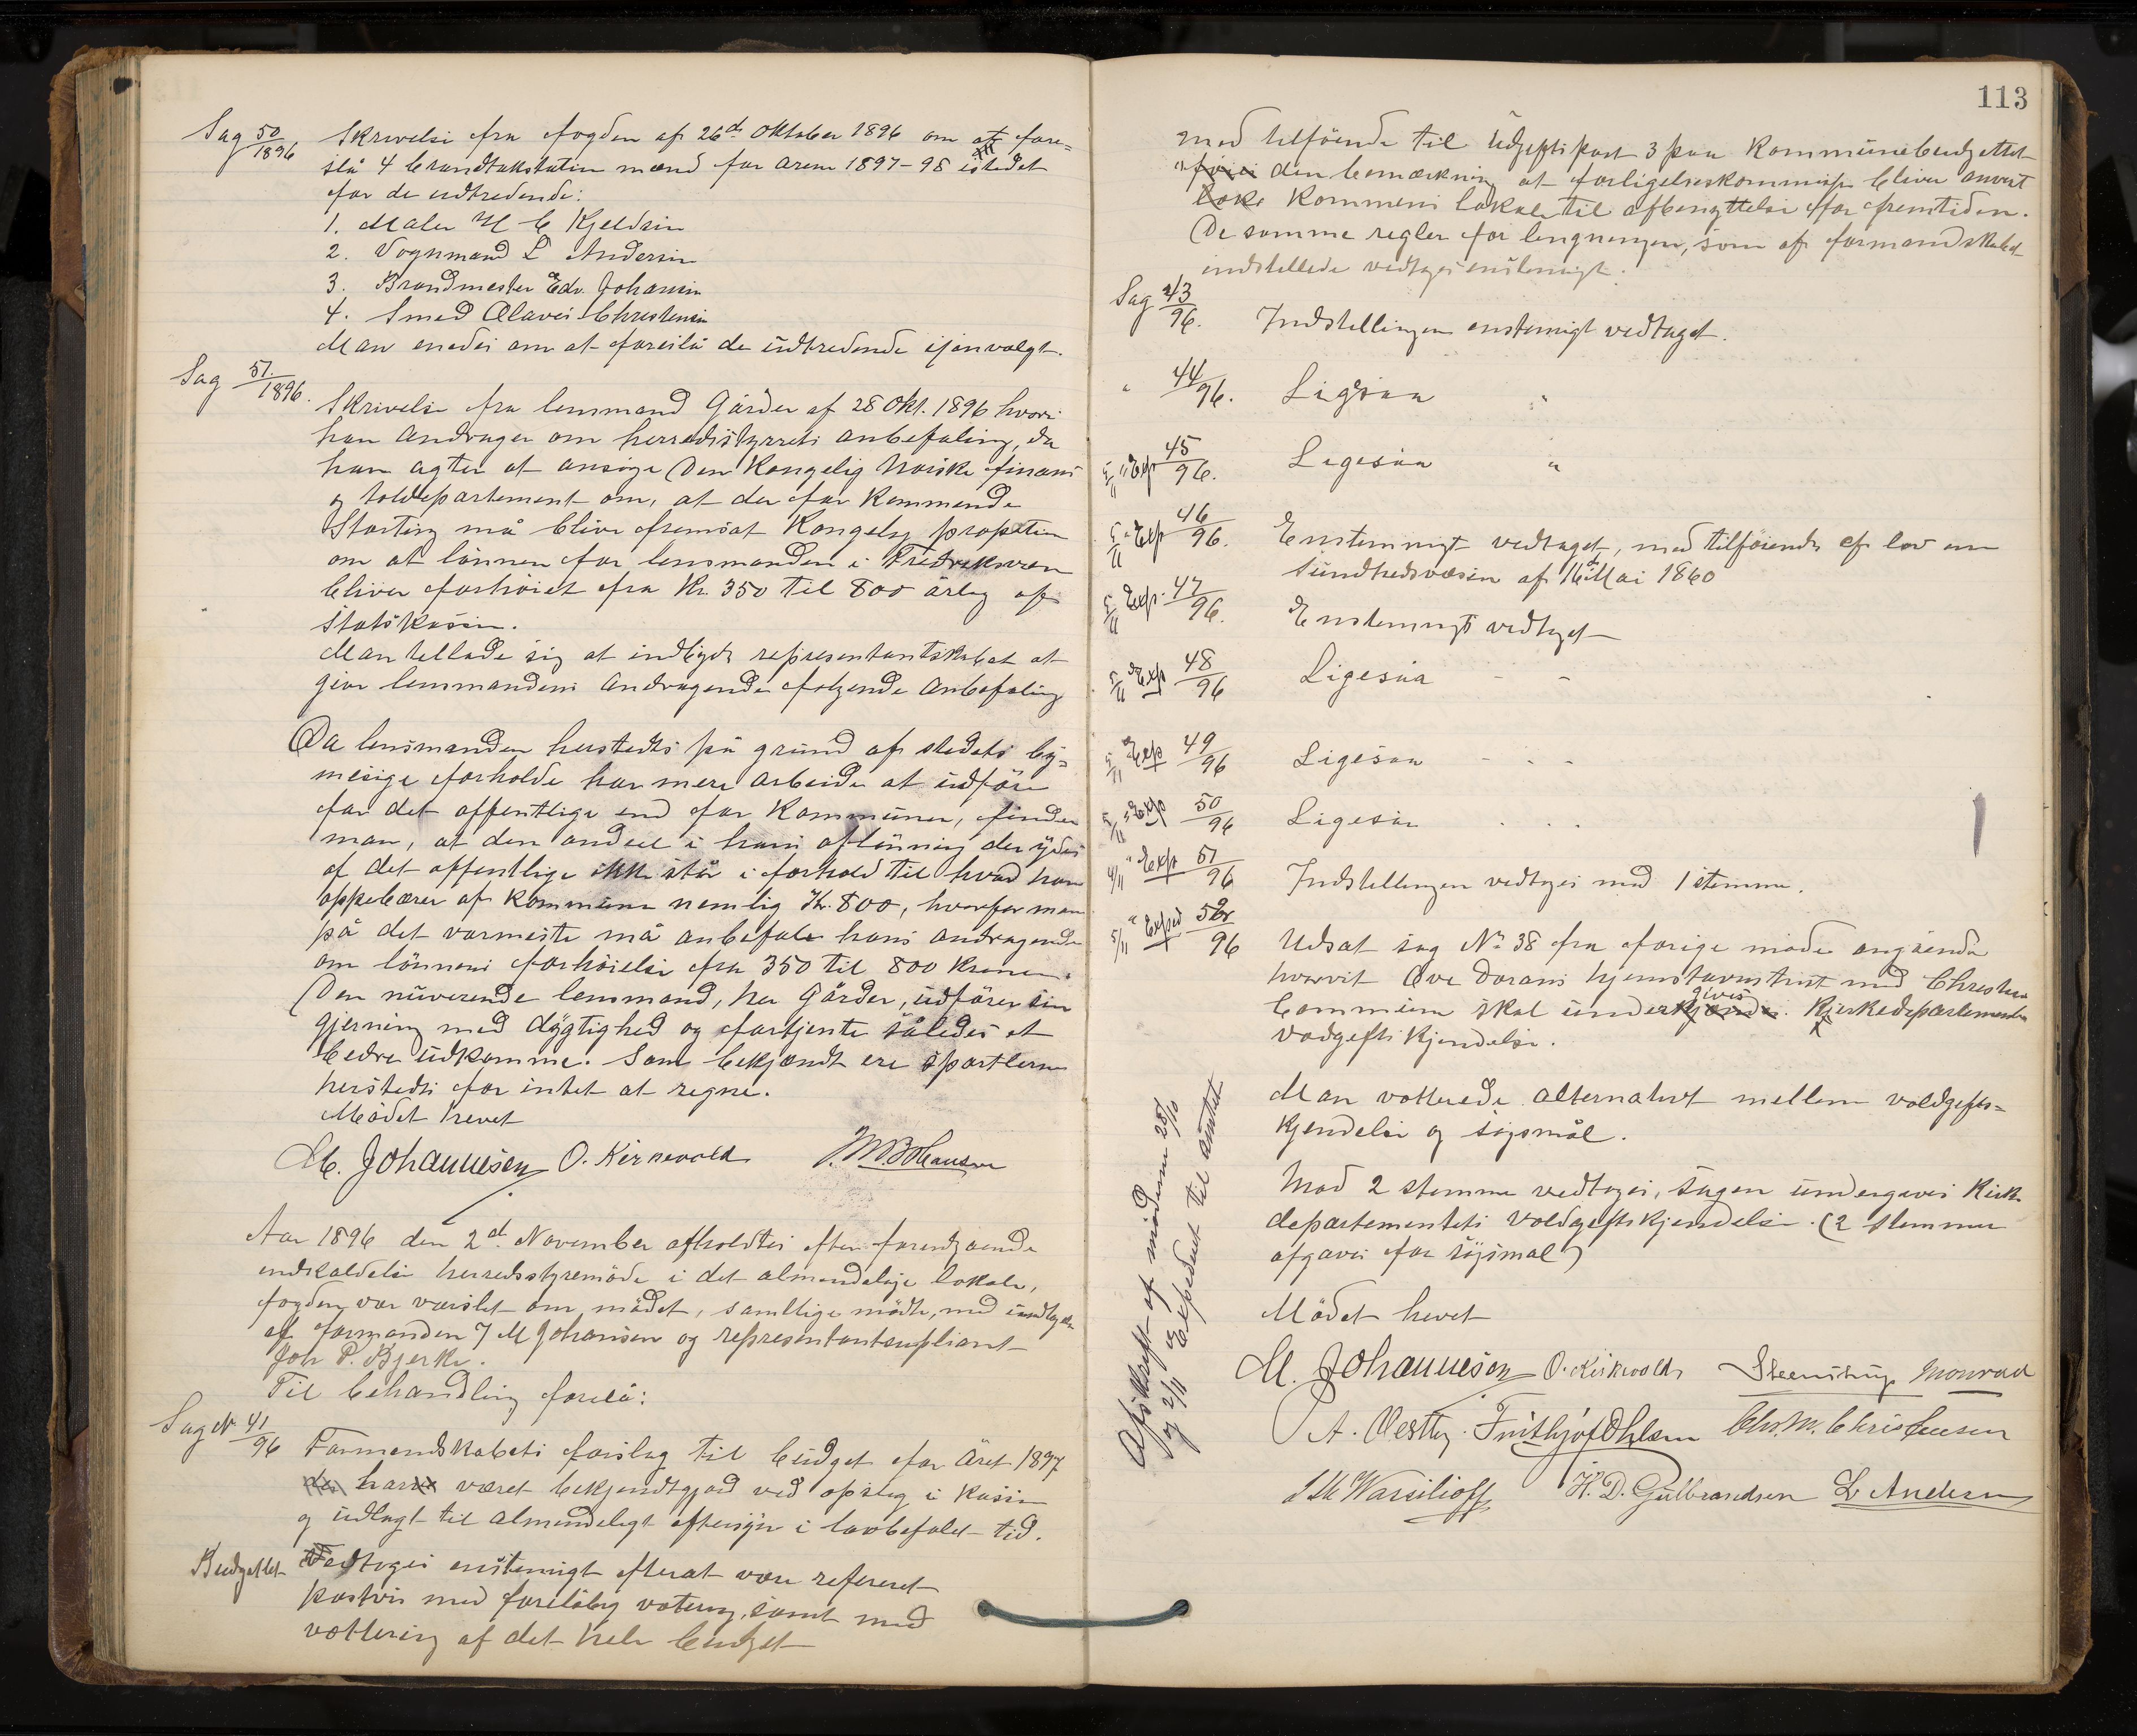 Sag 50/1896 Skrivelse fra fogden af 26de Oktober 1896 om at fore=
slå 4 brandtakstutions mænd for årene 1897-98 istedet
for de udtredende:
1. Maler H C Kjeldsen
2. Vognmand L Andersen
3. Brandmester Edv. Johansen
4. Smed Olaves Christensen
Man enedes om at foreslå de udtredende gjenvalgt.
Sag 51/1896. Skrivelse fra lensmand Gårder af 28 Okt. 1896 hvori
han andrager om herredsstyrrets anbefaling, da
han agter at ansøge Den Kongelig Norske finans
og tolddepartement om, at der for kommende
Storting må blive fremsat Kongelig propotion
om at lönnen for lensmanden i Fredreksværn
bliver forhöiet fra Kr. 350 til 800 årlig af
statskassen.
Man tillade sig at indbyde representantskabet at
give lensmandens andragende følgende anbefaling
Da lensmanden herstedts på grund af stedets by=
mæsige forholde har mere arbeide at udföre
for det offentlige end for Kommunen, finder
man, at den andeel i hans aflönning der ydes
af det offentlige ikke står i forhold til hvad han
oppebærer af kommunen nemlig Kr. 800, hvorfor man
på det varmeste må anbefale hans andragende
om lönnens forhöielse fra 350 til 800 Kroner.
Den nuværende lensmand, her Gårder, udförer sin
gjerning med dygtighed og fortjente således et
bedre udkomme. Som bekjændt ere sportlerne
herstedts for intet at regne.
Mödet hevet
M. Johannesen O. Kirkevold J. M. Johansen
Aar 1896 den 2de November afholdtes efter foregaaende
indkaldelse herredsstyremöde i det almindelige lokale,
fogden var varslet om mödet, samtlige mödte, med undtagelse
af formanden J M Johansen og representantsupliant
Joh P. Bjerke.
Til behandling forelå:
Sag No 41/96 Formandskabets forslag til budget for Året 1897
har været bekjendtgjord ved opslag i kassen
og udlagt til almindeligt eftersyn i lovbefalet tid.
Budgettet Vedtoges enstemigt efterat være refereret
postvis med foreløbig votering, samt med
vottering af det hele budget
113
med tilföiende til Udgiftspost 3 paa Kommunebudgettet
den bemærkning at forligelseskommission bliver anvist
Kommunens lokale til afbenyttelse for fremtiden.
De samme regler for ligningen, som af formandskabet
indstillede vedtoges enstemmigt.
Sag 43/96. Indstillingen enstemigt vedtaget.
" 44/96. Ligesaa "
5/11 Exp 45/96. Ligesaa "
5/11 Exp 46/96. Enstemmigt vedtaget, med tilföiende af lov om
sundhedsvæsen af 16de Mai 1860
5/11 Exp. 47/96. Enstemmigt vedtaget
5/11 Exp 48/96 Ligesaa - -
5/11 Exp 49/96 Ligesaa - - -
5/11 Exp 50/96 Ligesaa . . .
4/11 " Exp 51/96 Indstillingen vedtoges med 1 stemme.
5/11 " Exped 52/96 Udsat sag No 38 fra forige möde angående
hvorvit Ove Dorans hjemstavnstrist med Christiania
Commune skal undergives Kirkedepartementets
voldgifts kjendelse.
Man votterede alternativt mellem voldgifts=
kjendelse og søgsmål.
Mod 2 stemme vedtoges, sagen undergaves Kirke
departementets voldgiftskjendelse. (2 stemmer
afgaves for søgsmål)
Mödet hevet
M. Johannesen O. Kirkevold Steenstrup Monrad
A. Vestby. Frithjof Ohlsen Chr. M. Christensen
S M Wassilioff H. D. Gulbrandsen L Andersen
Afskrift af möderne 28/10
og 2/11 Expederet til amtet